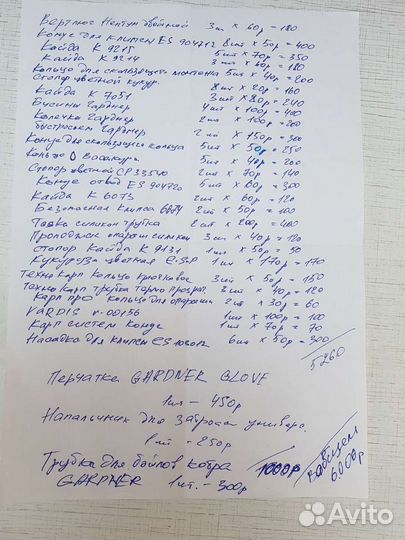 Вертлюг Нептун двойной 3шт × 60р = 180
Конус для клипсы ES 904712 8шт × 50р = 400
Кайда К 9215 5шт × 70р = 350
Кайда К 9214 3шт × 60р = 180
Кольцо для скользящего монтажа 5шт × 40р = 200
Стопор цветной кукур. 8шт × 20р = 160
Кайда К 7051 3шт × 80р = 240
Бусины Гарднер 4шт × 100р = 400
Колечко Гарднер 2шт × 100р = 200
быстросъем Гарднер 2шт × 150р = 300
Конус для скользящего кольца 5шт × 50р = 250
Кольцо О 5шт × 40р = 200
Стопор цветной СР33540 2шт × 70р = 140
Конус отвод ES 904720 5шт × 60р = 300
Кайда К 6073 2шт × 60р = 120
Безопасная клипса 6874 2шт × 50р = 100
силикон трубка 2шт × 200р = 400
силикон 3шт × 40р = 120
стопор Кайда К 9131 1шт × 50р = 50
Кукуруза цветная E.S.P 1шт × 170р = 170
Техно Карп Кольцо крючковое 3шт × 50р = 150
Техно Карп трубка термо прозрач. 3шт × 40р = 120
Карп про Кольцо для оправы 2шт × 30р = 60
VARDIS r-00156 1шт × 100р = 100
Карп систем Конус 1шт × 70р = 70
Насадка для клипсы ES 6шт × 50р = 300
5260
Перчатка GARDNER GLOVE
1шт – 450р
Напальчник для заброса универ.
1шт – 250р
Трубка для бойлов кобра 1000р
GARDNER 1шт. – 300р
6.000р
Avito